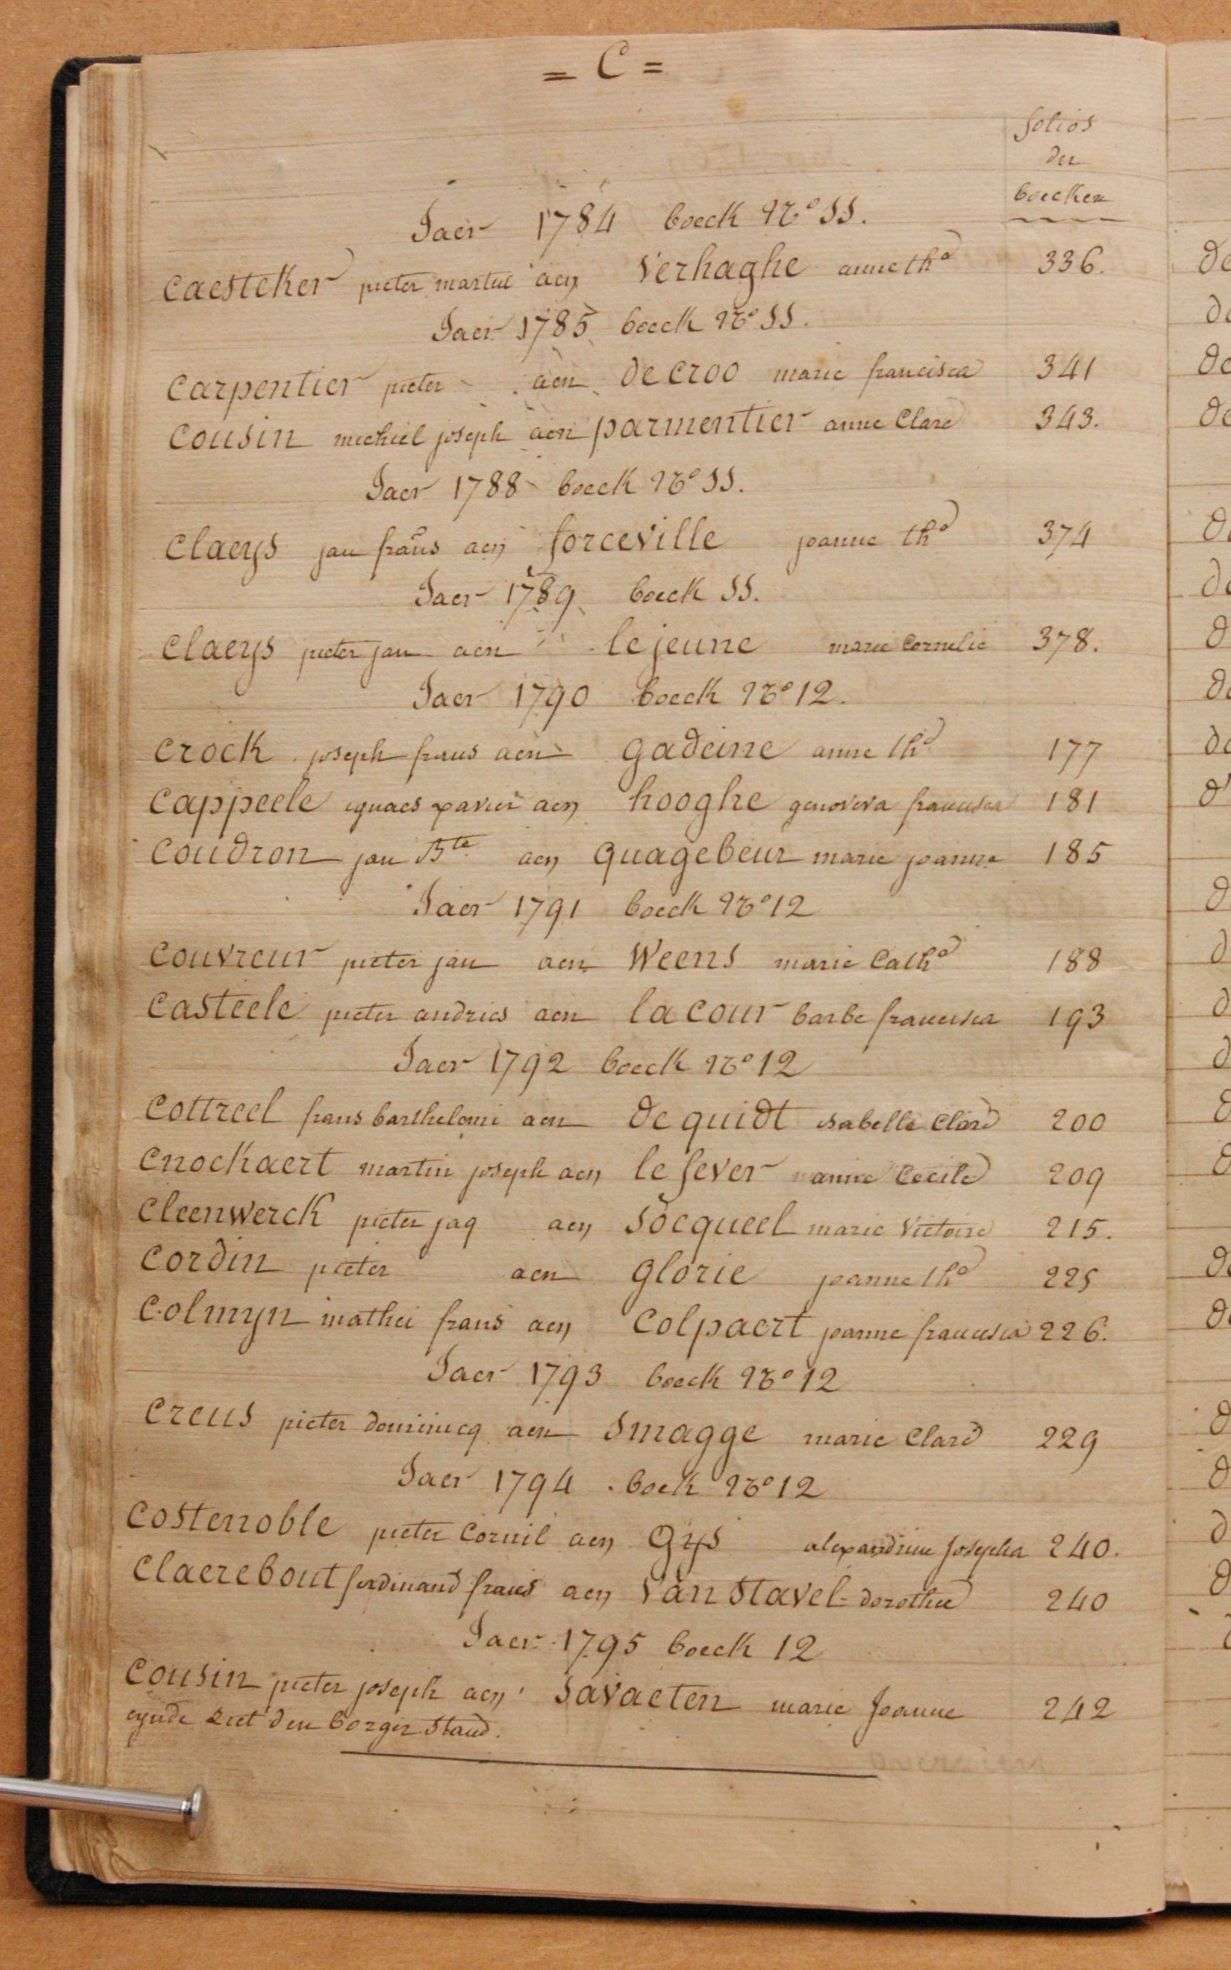 = C =
folios
der
boecken
Jaer 1784 boeck No SS.
Caesteker pieter martin aen Verhaghe anne tha 336.
Jaer 1785 boeck No SS.
Carpentier pieter aen de croo marie francisca 341
Cousin michiel joseph aen parmentier anne Clare 343.
Jaer 1788 boeck No SS.
Claeys jan frans aen forceville joanne tha 374
Jaer 1789 boeck SS.
Claeys pieter jan aen lejeune marie Cornelie 378.
Jaer 1790 boeck No 12.
Crock joseph frans aen gadeine anne tha 177
Cappeele ignaes xavier aen hooghe genoveva francisca 181
Coudron jan Bte aen quagebeur marie joanne 185
Jaer 1791 boeck No 12
Couvreur pieter jan aen Weens marie Catha 188
Casteele pieter andries aen la cour barbe francisca 193
Jaer 1792 boeck No 12
Cottreel frans barthelomi aen de quidt isabelle Clare 200
Cnockaert martin joseph aen le fever anne Cecile 209
Cleenwerck pieter jaq aen Socqueel marie Victoire 215.
Cordin pieter aen glorie joanne tha 225
Colmyn mathei frans aen Colpaert joanne francisca 226.
Jaer 1793 boeck No 12
Creus pieter dominicq aen Smagge marie Clare 229
Jaer 1794 boek No 12
Costenoble pieter Cornil aen Gys alexandrine Josepha 240.
Claerebout ferdinand frans aen Van Stavel dorothee 240
Jaer 1795 boeck 12
Cousin pieter joseph aen Savaeten marie Joanne 242
eynde ziet den borger Stand.